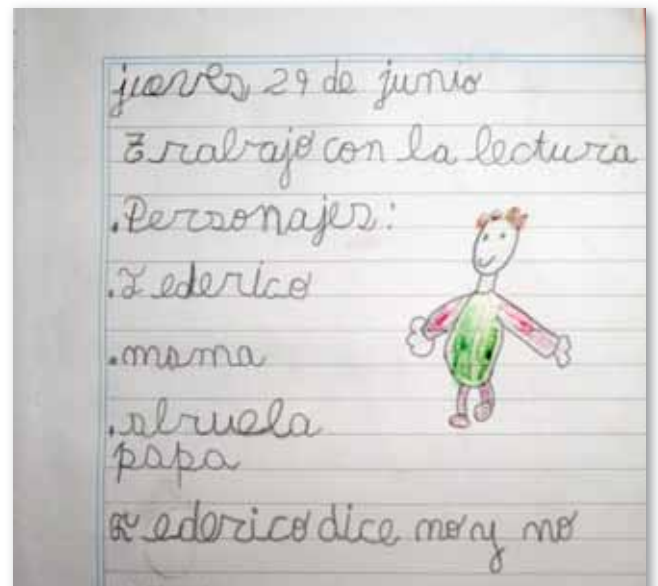 jueves 29 de junio
Trabajo con la lectura
.Personajes:
.Federico
.mama
.abuela
papa
Federico dice no y no